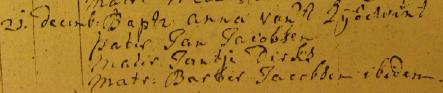 21. decemb. Bapt. anna van't Zijdewint
Pater Jan Jacobsen
Mater Jantje Dirks
Matr. Barber Jacobsen ibidem.